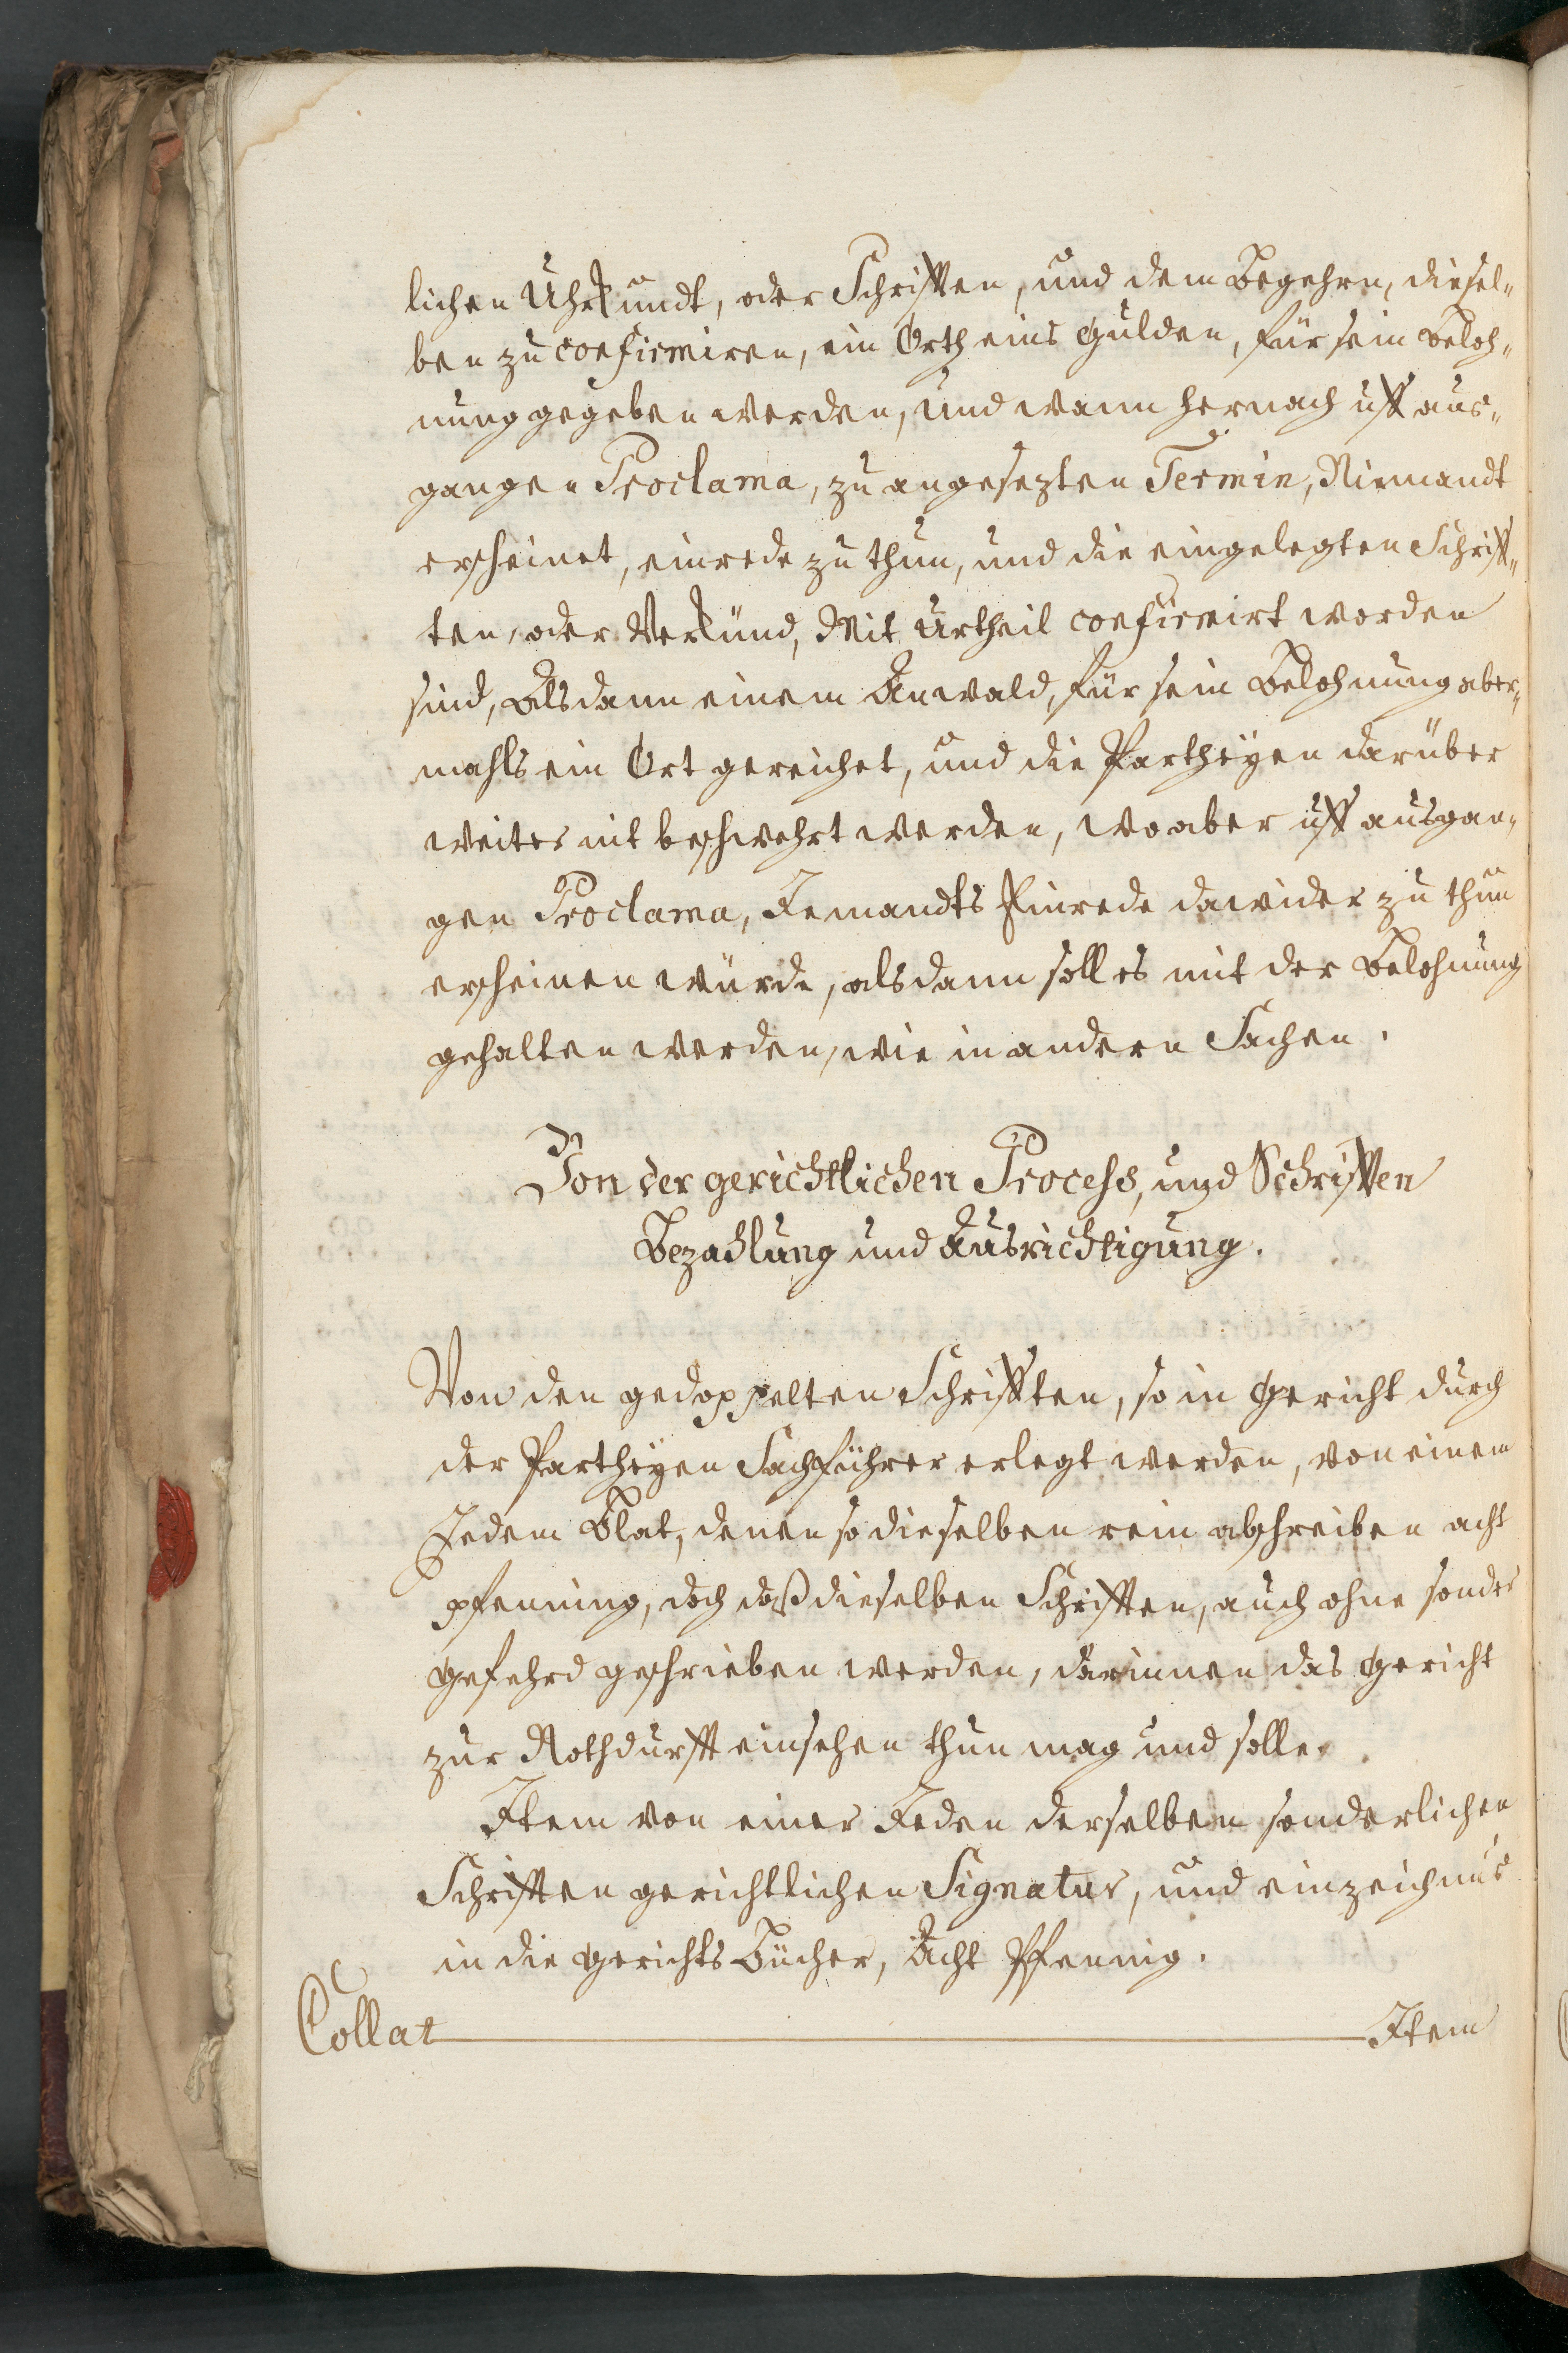 lichen Uhrkundt, oder Schrifften, und dem Begehrn, diesel„
ben zu confirmiren, ein Orth eins Gulden, für sein Beloh„
nung gegeben werden, und wann hernach uff aus„
gangen Proclama, zu angesezten Termin, Niemandt
erscheinet, einrede zu thun, und die eingelegten Schriff„
ten, oder Verkünd, Mit Urtheil confirmirt worden
sind, Alsdann einem Anwald, für sein Belohnung aber„
mahls ein Ort gereichet, und die Partheyen darüber
weiter nit beschwehrt werden, wo aber uff ausgan„
gen Proclama, Jemandts Einrede dawider zu thun
erscheinen würde, alsdann soll es mit der Belohnung
gehalten werden, wie in andern Sachen.
Von der gerichtlichen Process, und Schrifften
Bezahlung und Ausrichtigung.
Von den gedoppelten Schrifften, so in Gericht durch
der Partheyen Sachführer erlegt werden, von einem
Jedem Blat, denen so dieselben rein abschreiben acht
pfenning, doch daß dieselben Schrifften, auch ohne sonder
Gefehrd geschrieben werden, darinnen das Gericht
zur Nothdurfft einsehen thun mag und solle.
Item von einer Jeden derselben sonderlichen
Schrifften gerichtlichen Signatur, und einzeichnus
in die Gerichts Bücher, Acht Pfennig.
Collat Item